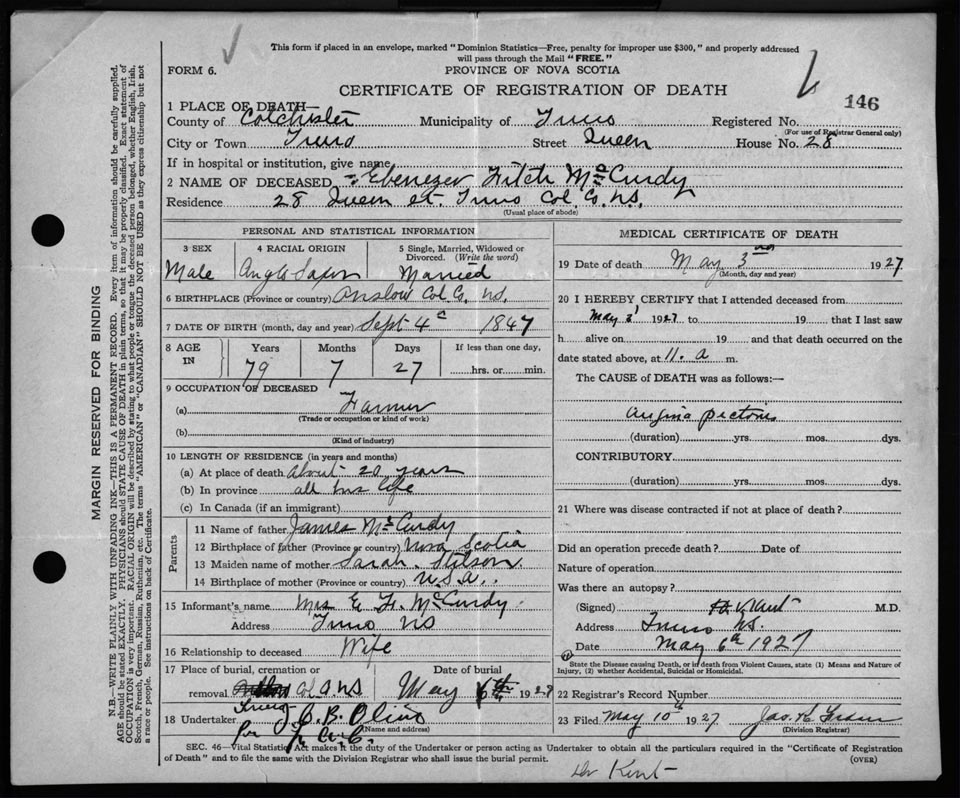 This form if placed in an envelope, marked "Dominion Statistics—Free, penalty for improper use $300," and properly addressed
will pass through the Mail "FREE."
FORM 6.
PROVINCE OF NOVA SCOTIA
CERTIFICATE OF REGISTRATION OF DEATH
146
1 PLACE OF DEATH—
County of Colchester Municipality of Truro Registered No.
(For use of Registrar General only)
City or Town Truro Street Queen House No. 28
If in hospital or institution, give name
2 NAME OF DECEASED Ebenezer Fitch McCurdy
Residence 28 Queen st. Truro Col. Co. N.S.
(Usual place of abode)
PERSONAL AND STATISTICAL INFORMATION
3 SEX 4 RACIAL ORIGIN 5 Single, Married, Widowed or
Divorced. (Write the word)
Male Anglo Saxon Married
6 BIRTHPLACE (Province or country) Onslow Col. Co. N.S.
7 DATE OF BIRTH (month, day and year) Sept 4 1847
8 AGE IN Years Months Days If less than one day,
79 7 27 hrs. or min.
9 OCCUPATION OF DECEASED
(a) Farmer
(Trade or occupation or kind of work)
(b)
(Kind of industry)
10 LENGTH OF RESIDENCE (in years and months)
(a) At place of death about 20 years
(b) In province all his life
(c) In Canada (if an immigrant)
Parents
11 Name of father James McCurdy
12 Birthplace of father (Province or country) Nova Scotia
13 Maiden name of mother Sarah
14 Birthplace of mother (Province or country) U.S.A.
15 Informant's name Mrs E. F. McCurdy
Address Truro NS
16 Relationship to deceased Wife
17 Place of burial, cremation or Date of burial
removal Col Co NS May 6th 1927
18 Undertaker
(Name and address)
MEDICAL CERTIFICATE OF DEATH
19 Date of death May 3rd 1927
(Month, day and year)
20 I HEREBY CERTIFY that I attended deceased from
May 3 1927 to 19 that I last saw
h alive on 19 and that death occurred on the
date stated above, at 11. a m.
The CAUSE of DEATH was as follows:—
angina pectoris
(duration) yrs. mos. dys.
CONTRIBUTORY
(duration) yrs. mos. dys.
21 Where was disease contracted if not at place of death?
Did an operation precede death? Date of
Nature of operation
Was there an autopsy?
(Signed) Kent M.D.
Address Truro NS.
Date May 6th 1927
State the Disease causing Death, or in death from Violent Causes, state (1) Means and Nature of
Injury, (2) whether Accidental, Suicidal or Homicidal.
22 Registrar's Record Number
23 Filed May 10th 1927 Jas. 
(Division Registrar)
SEC. 46—Vital Statistics Act makes it the duty of the Undertaker or person acting as Undertaker to obtain all the particulars required in the "Certificate of Registration
of Death" and to file the same with the Division Registrar who shall issue the burial permit.
(OVER)
Dr Kent
MARGIN RESERVED FOR BINDING
N.B.—WRITE PLAINLY WITH UNFADING INK—THIS IS A PERMANENT RECORD. Every item of information should be carefully supplied.
AGE should be stated EXACTLY. PHYSICIANS should STATE CAUSE OF DEATH in plain terms, so that it may be properly classified. Exact statement of
OCCUPATION is very important. RACIAL ORIGIN will be described by stating to what people or tongue the deceased person belonged, whether English, Irish,
Scotch, French, German, Russian, Ruthenian, etc. The terms "AMERICAN" or "CANADIAN" SHOULD NOT BE USED as they express citizenship but not
a race or people. See instructions on back of Certificate.